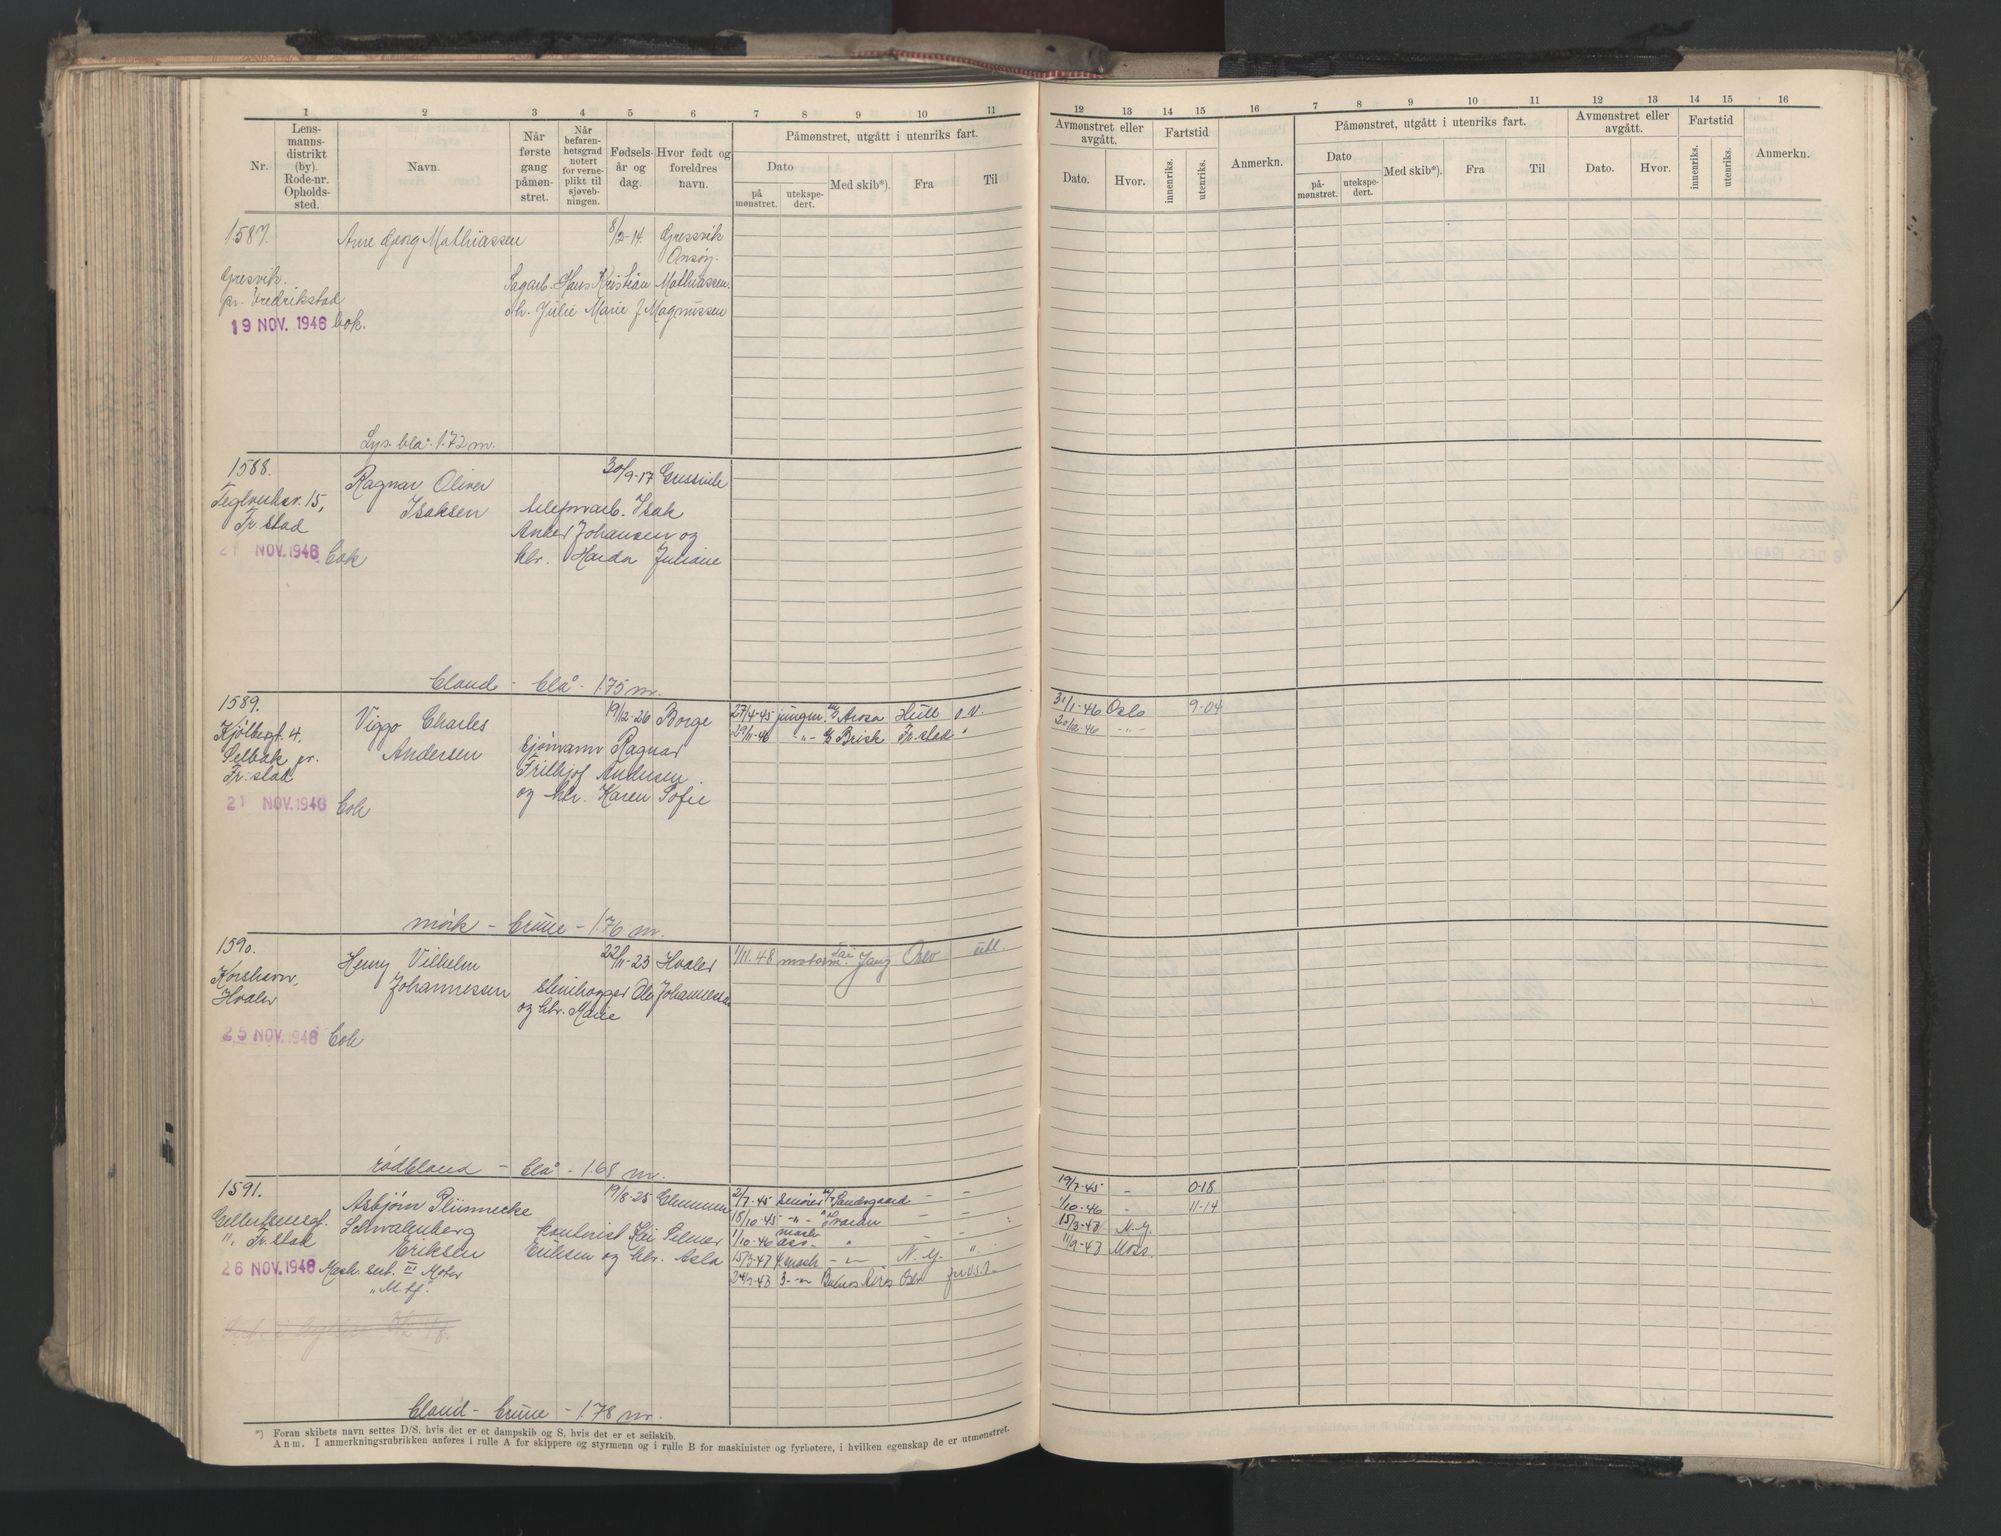 1 2 3 4 5 6 7 8 9 10 11
Nr. Lensmannsdistrikt (by). Rode-nr. Oppholdssted. Navn. Når første gang påmønstret. Når befarenhetsgrad notert for verneplikt til sjøvebningen. Fødselsår og dag. Hvor født og foreldres navn. Påmønstret, utgått i utenriks fart.
Dato Med skib*). Fra Til
på mønstret. utekspedert.
12 13 14 15 16 7 8 9 10 11 12 13 14 15 16
Avmønstret eller avgått. Fartstid Anmerkn. Påmønstret, utgått i utenriks fart. Avmønstret eller avgått. Fartstid Anmerkn.
Dato. Hvor. innenriks. utenriks. Dato Med skib*). Fra Til Dato. Hvor. innenriks. utenriks.
påmønstret. utekspedert.
1587. Arne Georg Mathiassen 8/2-14. Gressvik
Onsøy.
Gresvik. Sagarb. Hans Kristian Mathiassen.
pr. Fredrikstad h. Julie Marie f Magnussen
19 NOV. 1946 bok.
Lys. blå. 1.72 m.
1588. Ragnar Oliver 30/9-17 Gressvik
Teglverksv. 15, Isaksen telefonarb. Isak
Fr.stad Anker Johansen og
21 NOV. 1946 bok hr. Harda Juliane
bland - blå - 1.75 m.
1589. Viggo Charles 19/12-26 Borge 27/4-45 jungm. M/S Arosa Hull o.v. 31/1-46 Oslo 9-04
Kjølbergt. 4, Andersen sjømann Ragnar 29/11-46 -"- Brisk Fr.stad " 20/12-46 -"-
Selbak pr. Fritjof Andersen.
Fr.stad og hr. Karen Sofie
21 NOV. 1946 bok
mörk - brune - 1.76 m.
1590. Henry Vilhelm 22/11-23 Hvaler 1/11.48 motorm. Tai Yang Oslo utl.
Korshavn, Johannessen stenhogger Ole Johannessen
Hvaler og hr. Marie
25 NOV. 1946 bok
rödbland - blå - 1.68 m.
1591. Asbjørn Plünnecke 19/8-25 Glemmen 2/7-45 Sandsgaard - - 19/7-45 - 0-18
Schwalenberg kontorist Kai Selmer 18/10-45 -"- Svaran - - 1/10-46 - 11-14
Fr.stad Eriksen Eriksen og hr. Asla 1/10-46 mask. ass. " - " 15/3-47 N.Y.
26 NOV. 1946 Mask. sert. III Motor 15/3-47 4 mask -"- N.Y. " 11/9-47 Moss.
"M. tf." 3-"- Buenos Aires Oslo
bland - brune - 1.78 m.
*) Foran skibets navn settes D/S, hvis det er et dampskib og S, hvis det er et seilskib.
Anm. I anmerkningsrubrikken anføres i rulle A for skippere og styrmenn og i rulle B for maskinister og fyrbøtere, i hvilken egenskap de er utmønstret.